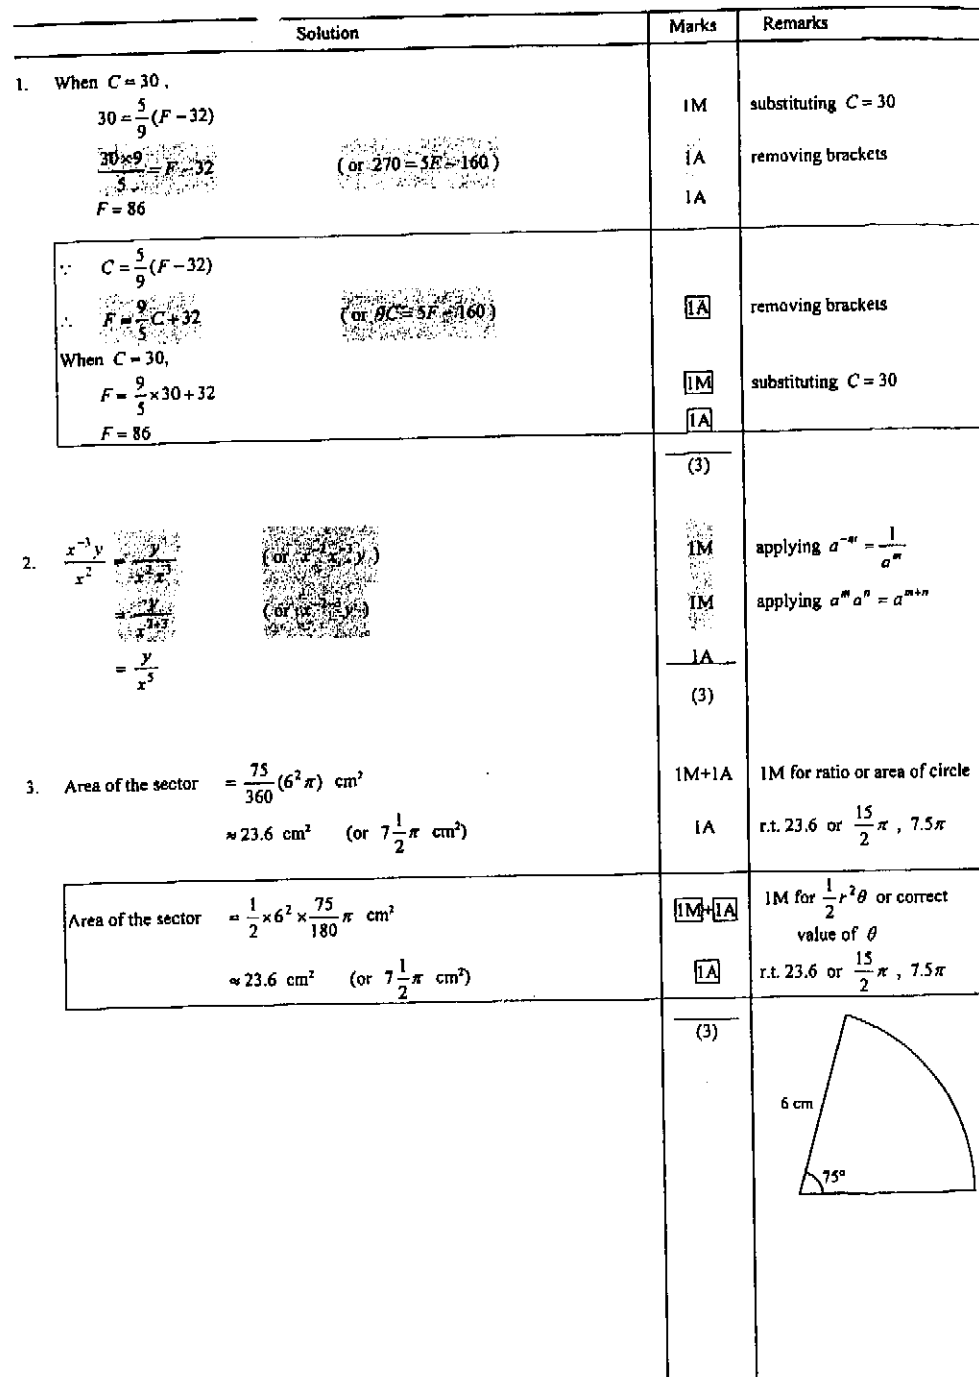 Solution Marks Remarks
1. When C = 30 ,
30 = 5/9 (F − 32) 1M substituting C = 30
30×9/5 = F − 32 ( or 270 = 5F − 160 ) 1A removing brackets
F = 86 1A
∵ C = 5/9 (F − 32)
∴ F = 9/5 C + 32 ( or 9C = 5F − 160 ) 1A removing brackets
When C = 30,
F = 9/5 × 30 + 32 1M substituting C = 30
F = 86 1A
(3)
2. x⁻³y/x² = y/(x²x³) ( or x⁻²x⁻³y ) 1M applying a⁻ᵐ = 1/aᵐ
= y/x²⁺³ ( or x⁻²⁻³y ) 1M applying aᵐaⁿ = aᵐ⁺ⁿ
= y/x⁵ 1A
(3)
3. Area of the sector = 75/360 (6²π) cm² 1M+1A 1M for ratio or area of circle
≈ 23.6 cm² (or 7 1/2 π cm²) 1A r.t. 23.6 or 15/2 π , 7.5π
Area of the sector = 1/2 × 6² × 75/180 π cm² 1M+1A 1M for 1/2 r²θ or correct
value of θ
≈ 23.6 cm² (or 7 1/2 π cm²) 1A r.t. 23.6 or 15/2 π , 7.5π
(3)
6 cm
75°